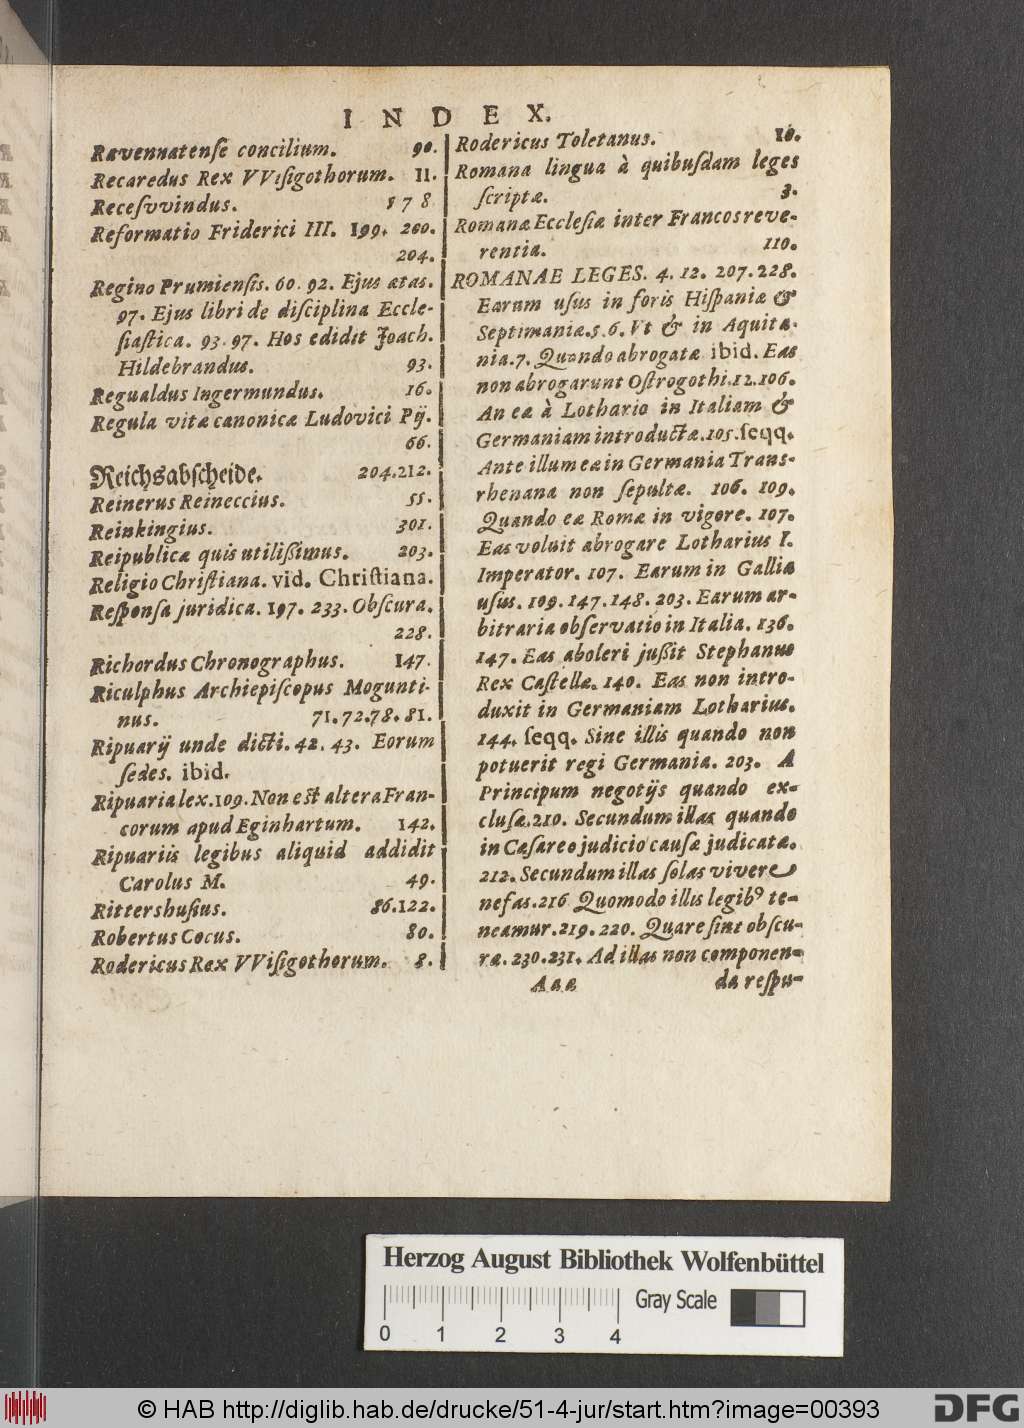 INDEX.
Ravennatenſe concilium. 90.
Recaredus Rex VViſigothorum. 11.
Receſvvindus. 178
Reformatio Friderici III. 199. 200.
204.
Regino Prumienſis. 60. 92. Ejus ætas.
97. Ejus libri de diſciplina Eccle-
ſiaſtica. 93. 97. Hos edidit Joach.
Hildebrandus. 93.
Regualdus Ingermundus. 16.
Regula vitæ canonicæ Ludovici Pij.
66.
Reichsabſcheide. 204.212.
Reinerus Reineccius. 55.
Reinkingius. 301.
Reipublicæ quis utilißimus. 203.
Religio Chriſtiana. vid. Chriſtiana.
Reſponſa juridica. 197. 233. Obſcura.
228.
Richordus Chronographus. 147.
Riculphus Archiepiſcopus Mogunti-
nus. 71.72.78.81.
Ripuarij unde dicti. 42. 43. Eorum
ſedes. ibid.
Ripuaria lex. 109. Non eſt altera Fran-
corum apud Eginhartum. 142.
Ripuariis legibus aliquid addidit
Carolus M. 49.
Rittershuſius. 86.122.
Robertus Cocus. 80.
Rodericus Rex VViſigothorum. 8.
Rodericus Toletanus. 10.
Romana lingua à quibuſdam leges
ſcriptæ. 3.
Romanæ Eccleſiæ inter Francos reve-
rentia. 110.
ROMANAE LEGES. 4. 12. 207.228.
Earum uſus in foris Hiſpaniæ &
Septimaniæ.5.6. Vt & in Aquita-
nia.7. Quando abrogatæ ibid. Eas
non abrogarunt Oſtrogothi.12.106.
An eæ à Lothario in Italiam &
Germaniam introductæ.105.ſeqq.
Ante illum eæ in Germania Trans-
rhenana non ſepultæ. 106. 109.
Quando eæ Romæ in vigore. 107.
Eas voluit abrogare Lotharius I.
Imperator. 107. Earum in Gallia
uſus. 109.147.148.203. Earum ar-
bitraria obſervatio in Italia. 136.
147. Eas aboleri jußit Stephanus
Rex Caſtellæ. 140. Eas non intro-
duxit in Germaniam Lotharius.
144. ſeqq. Sine illis quando non
potuerit regi Germania. 203. A
Principum negotijs quando ex-
cluſæ.210. Secundum illas quando
in Cæſareo judicio cauſæ judicatæ.
212. Secundum illas ſolas vivere
nefas.216 Quomodo illis legibꝰ te-
neamur.219.220. Quare ſint obſcu-
ræ. 230.231. Ad illas non componen-
Aaa da reſpu-
Herzog August Bibliothek Wolfenbüttel
Gray Scale
0 1 2 3 4
© HAB http://diglib.hab.de/drucke/51-4-jur/start.htm?image=00393
DFG